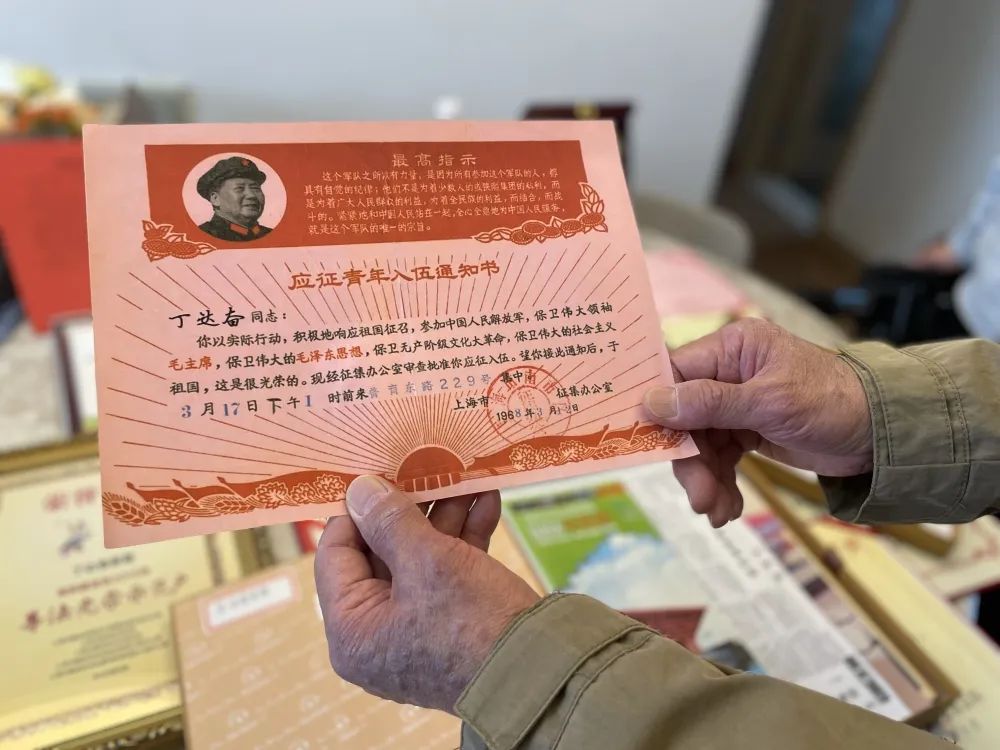 最高指示
这个军队之所以有力量，是因为所有参加这个军队的人，都
具有自觉的纪律；他们不是为着少数人的或狭隘集团的私利，而
是为着广大人民群众的利益，为着全民族的利益，而结合，而战
斗的。紧紧地和中国人民站在一起，全心全意地为中国人民服务，
就是这个军队的唯一的宗旨。
应征青年入伍通知书
丁达奋同志：
你以实际行动，积极地响应祖国征召，参加中国人民解放军，保卫伟大领袖
毛主席，保卫伟大的毛泽东思想，保卫无产阶级文化大革命，保卫伟大的社会主义
祖国，这是很光荣的。现经征集办公室审查批准你应征入伍。望你接此通知后，于
3月17日下午1时前来 育东路229号集中。
上海市 南市 征集办公室
1968年3月12日